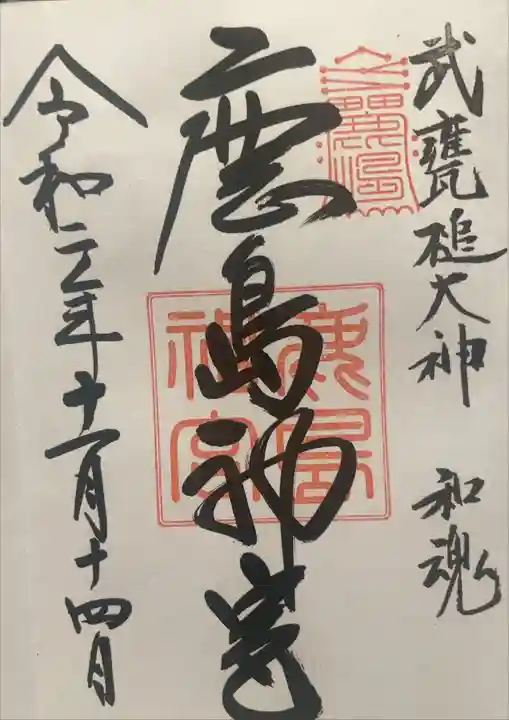 武甕槌大神 和魂
鹿島神宮
鹿島神宮
令和二年十一月十四月